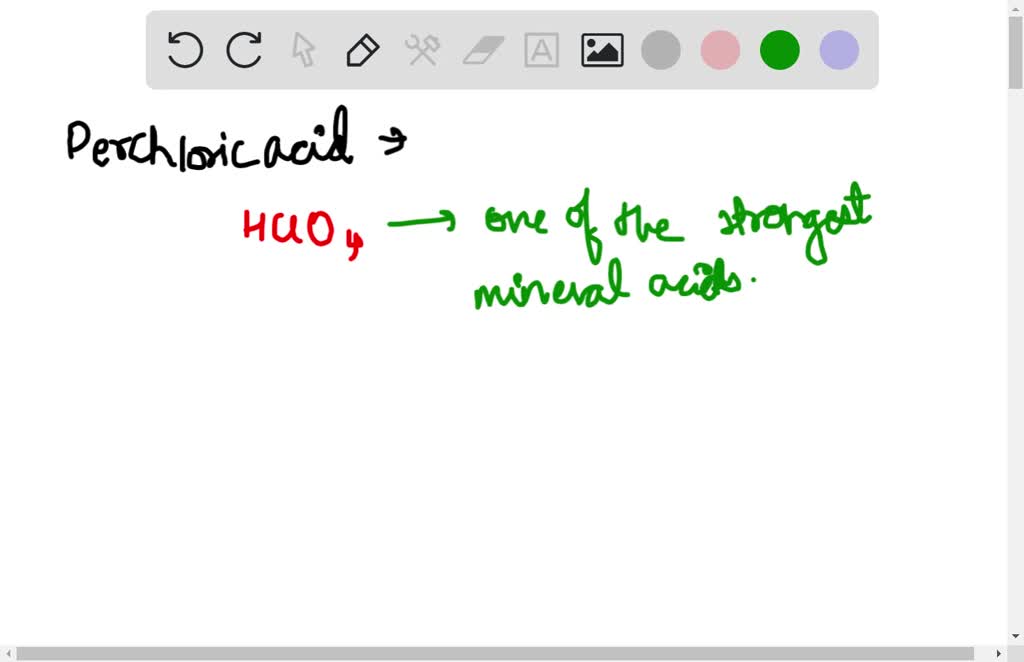 Perchloric acid →
HClO4 → one of the strongest
mineral acids.